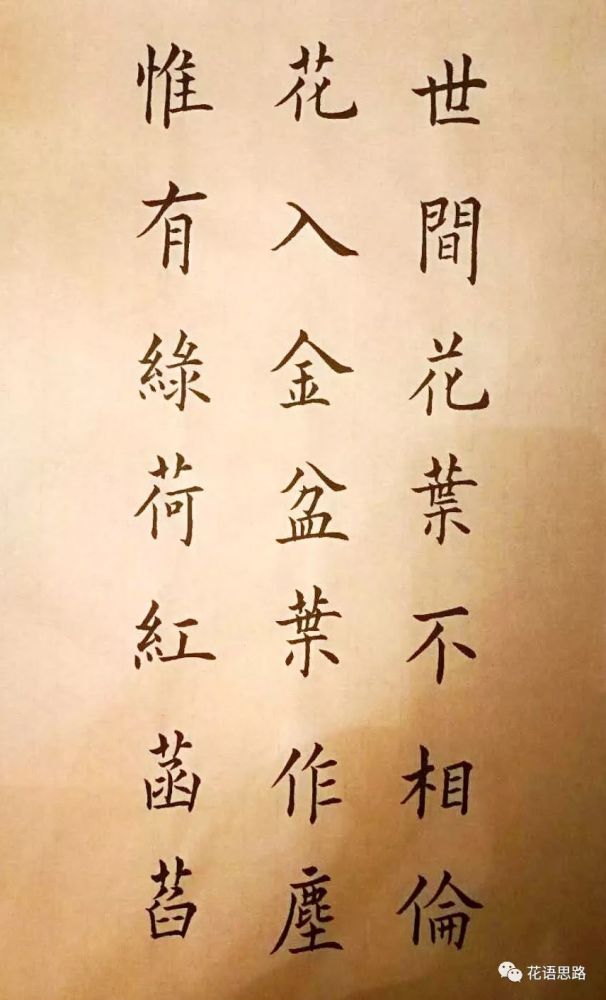 世間花葉不相倫
花入金盆葉作塵
惟有綠荷紅菡萏
花语思路